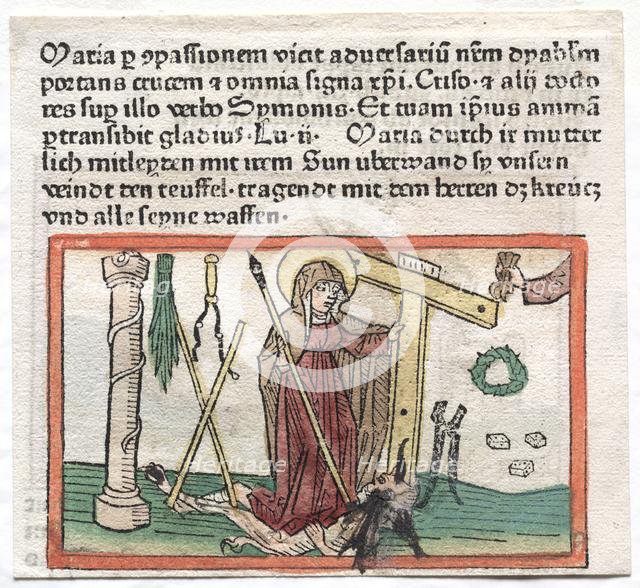 Maria ꝑ ↄpassionem vicit aduersariū nr̄m dyablm̄
portans crucem ⁊ omnia signa xp̄i. Criso. ⁊ alij docto
res suꝑ illo verbo Symonis. Et tuam ip̄ius animā
ꝑtransibit gladius. Lu. ii. Maria durch ir mutter
lich mitleyden mit irem Sun uberwand sy vnsern
veindt den teuffel. tragendt mit dem herren dz kreücz
vnd alle seyne waffen.
Heritage
Heritage
Heritage
Heritage